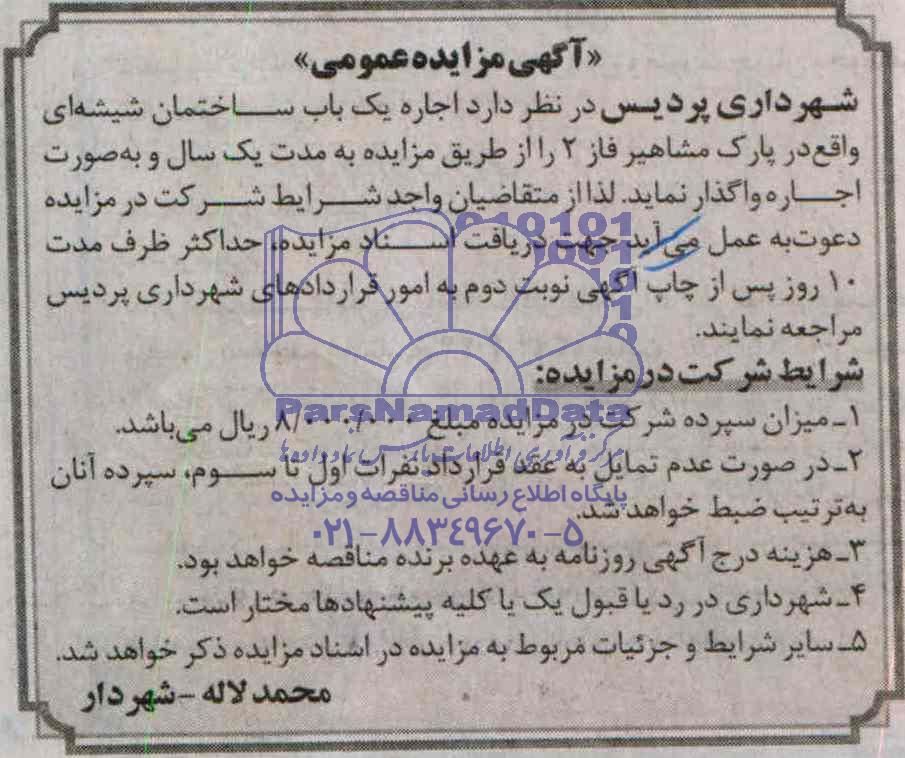 «آگهی مزایده عمومی»
شهرداری پردیس در نظر دارد اجاره یک باب ساختمان شیشه‌ای
واقع در پارک مشاهیر فاز ۲ را از طریق مزایده به مدت یک سال و به‌صورت
اجاره واگذار نماید. لذا از متقاضیان واجد شرایط شرکت در مزایده
دعوت به عمل می‌آید جهت دریافت اسناد مزایده، حداکثر ظرف مدت
۱۰ روز پس از چاپ آگهی نوبت دوم به امور قراردادهای شهرداری پردیس
مراجعه نمایند.
شرایط شرکت در مزایده:
۱ـ میزان سپرده شرکت در مزایده مبلغ ۸/۰۰۰/۰۰۰ ریال می‌باشد.
۲ـ در صورت عدم تمایل به عقد قرارداد نفرات اول تا سوم، سپرده آنان
به‌ترتیب ضبط خواهد شد.
۳ـ هزینه درج آگهی روزنامه به عهده برنده مناقصه خواهد بود.
۴ـ شهرداری در رد یا قبول یک یا کلیه پیشنهادها مختار است.
۵ـ سایر شرایط و جزئیات مربوط به مزایده در اسناد مزایده ذکر خواهد شد.
محمد لاله - شهردار
ParsNamadData
مرکز فرآوری اطلاعات پارس نماد داده‌ها
پایگاه اطلاع رسانی مناقصه و مزایده
۰۲۱-۸۸۳۴۹۶۷۰-۵